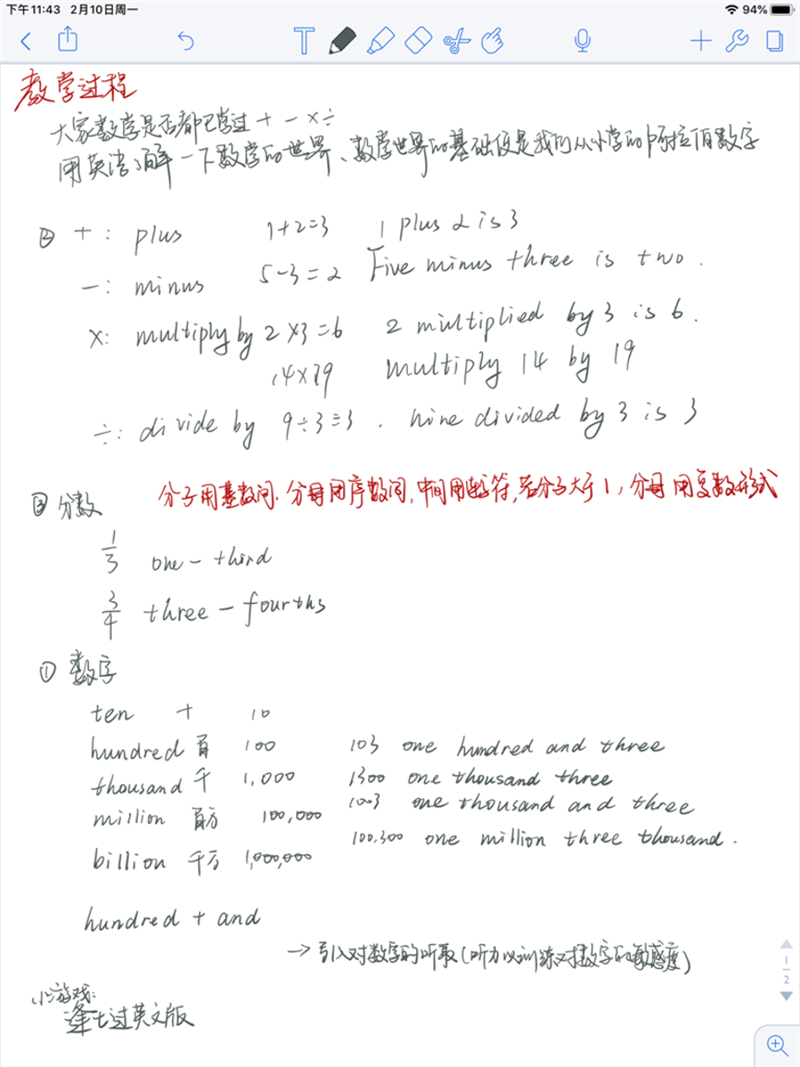 下午11:43 2月10日周一 94%
教学过程
大家数学是否都已学过 + − × ÷
用英语了解一下数学的世界、数学世界的基础便是我们从小学的阿拉伯数字
② +: plus 1+2=3 1 plus 2 is 3
−: minus 5−3=2 Five minus three is two.
×: multiply by 2×3=6 2 multiplied by 3 is 6.
14×19 multiply 14 by 19
÷: divide by 9÷3=3. nine divided by 3 is 3
③ 分数 分子用基数词.分母用序数词,中间用连字符,若分子大于1,分母用复数形式
1/3 one-third
3/4 three-fourths
① 数字
ten 十 10
hundred 百 100 103 one hundred and three
thousand 千 1,000 1300 one thousand three
1003 one thousand and three
million 百万 100,000
100,300 one million three thousand.
billion 千万 1,000,000
hundred + and
→ 引入对数字的听取(听力以训练对数字的敏感度)
小游戏:
逢七过英文版
1
2